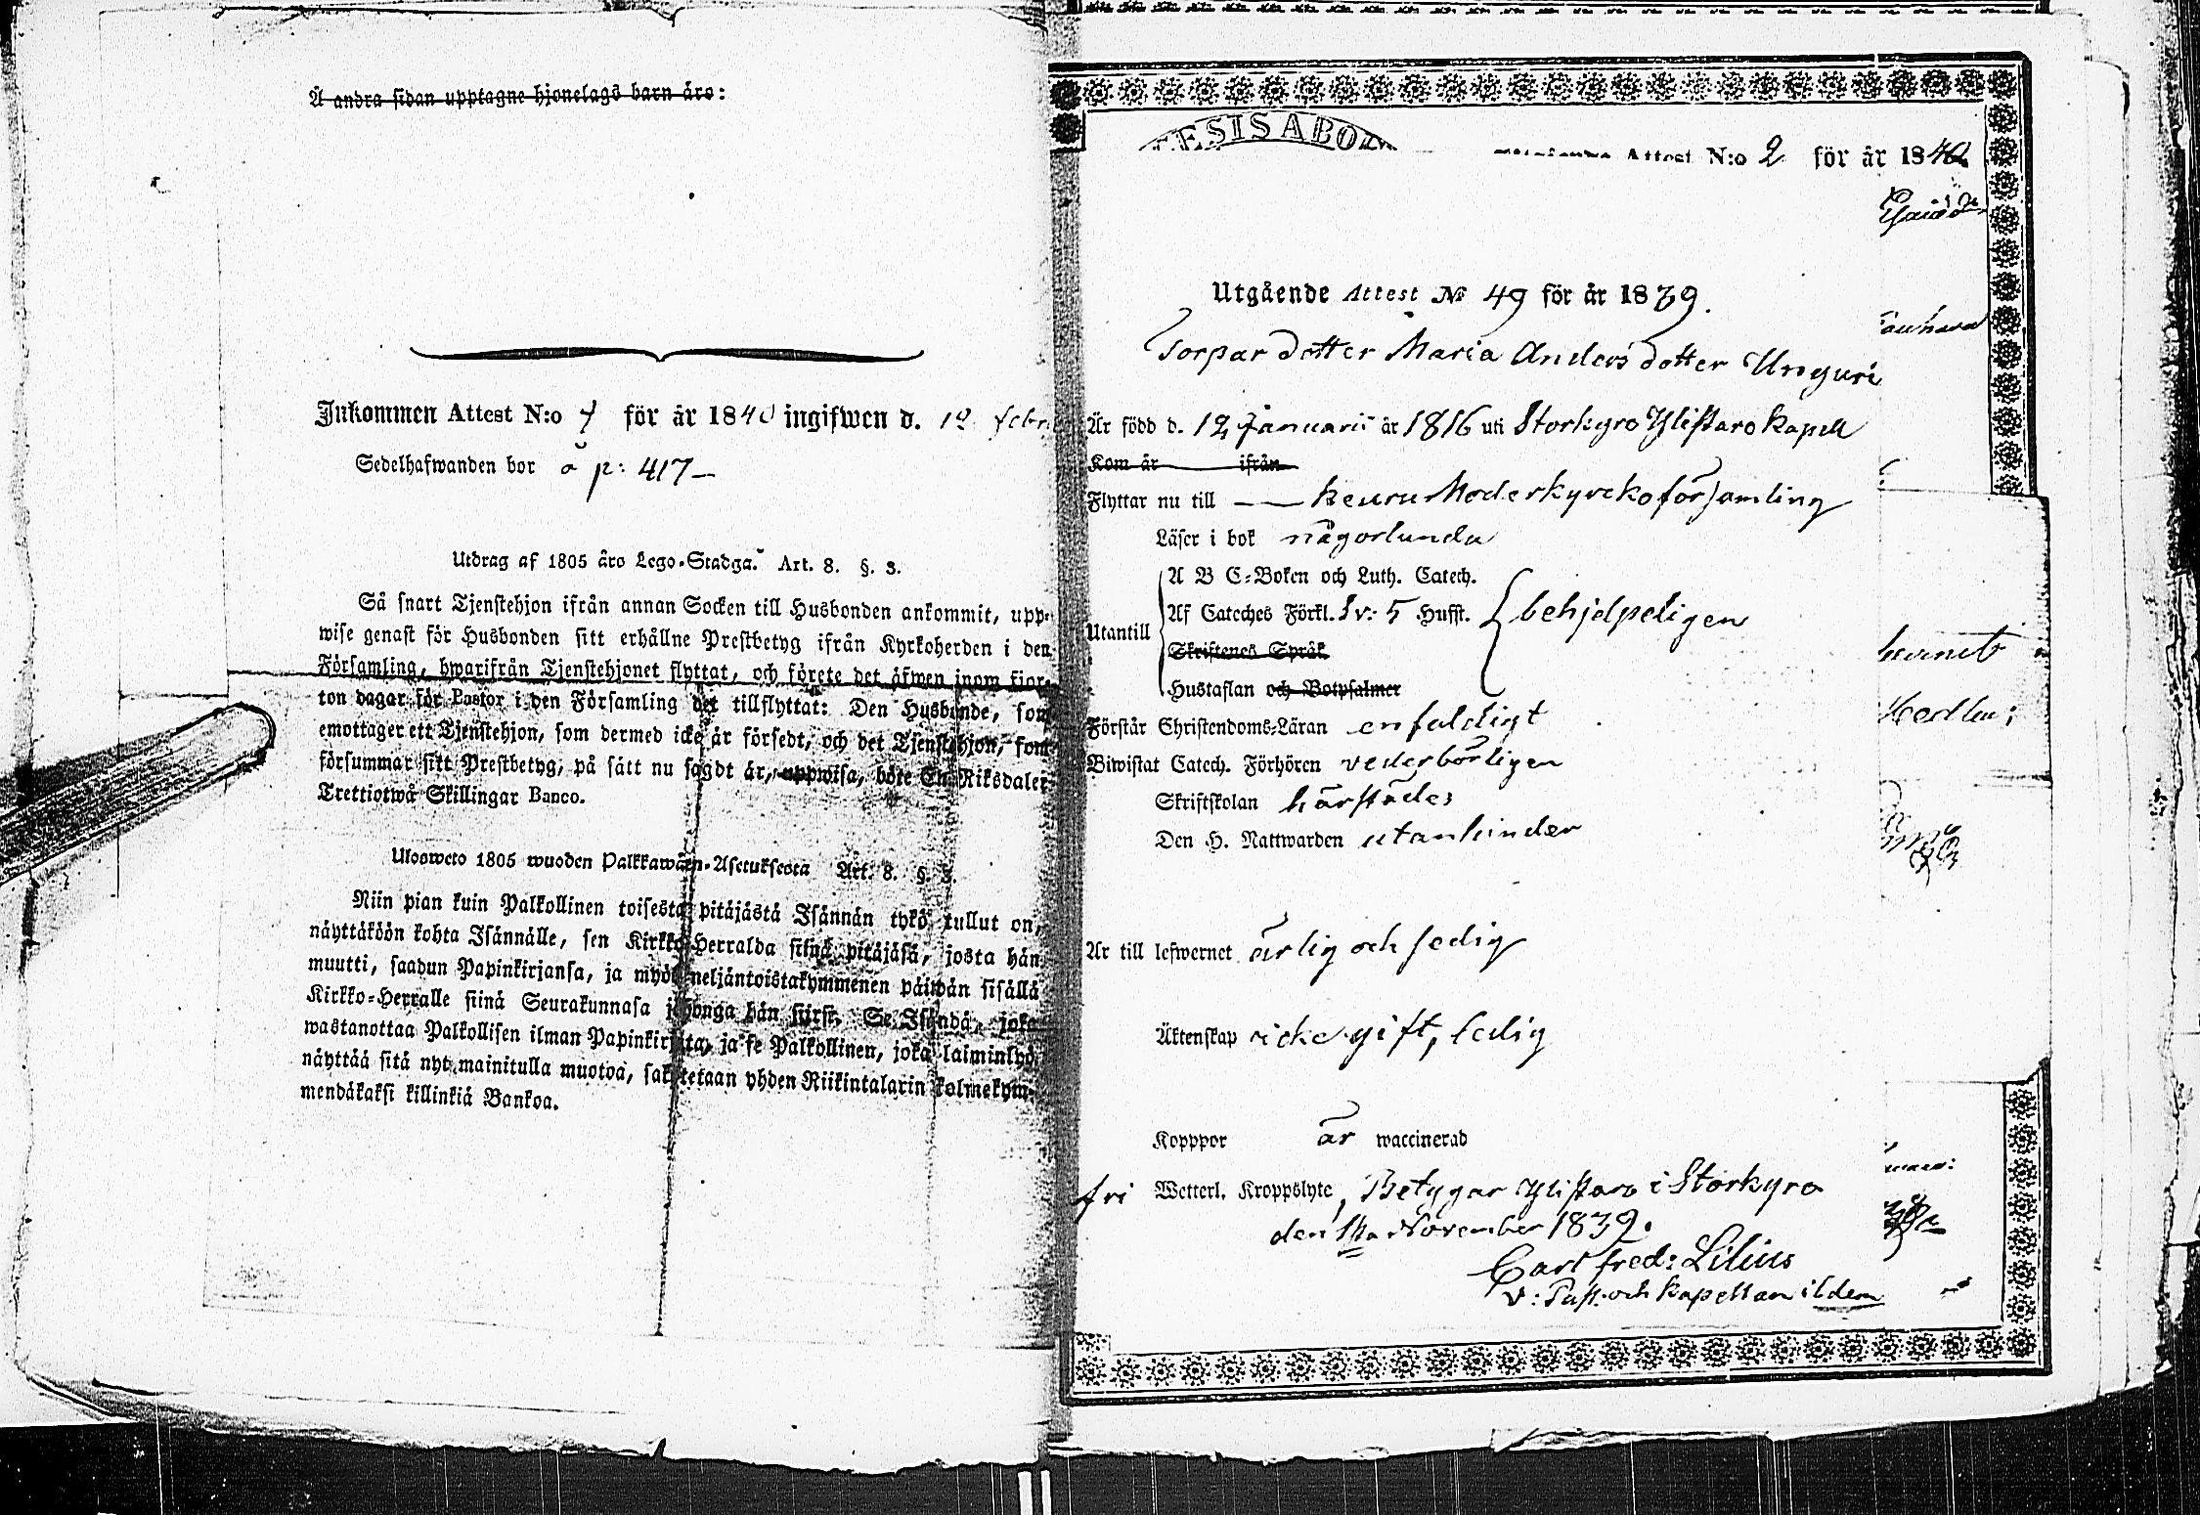 Å andra sidan upptagne hjonelags barn äro:
Inkommen Attest N:o 7 för år 1840 ingifwen d. 12 febr
Sedelhafwanden bor å p: 417
Utdrag af 1805 års Lego-Stadga. Art. 8. §. 3.
Så snart Tjenstehjon ifrån annan Socken till Husbonden ankommit, upp-
wise genast för Husbonden sitt erhållne Prestbetyg ifrån Kyrkoherden i den
Församling, hwarifrån Tjenstehjonet flyttat, och förete det äfwen inom fjor-
ton dagar för Pastor i den Församling det tillflyttat: Den Husbonde, som
emottager ett Tjenstehjon, som dermed icke är försedt, och det Tjenstehjon, som
försummar sitt Prestbetyg, på sätt nu sagdt är, uppwisa, böte En Riksdaler
Trettiotwå Skillingar Banco.
Ulosweto 1805 wuoden Palkkawäen-Asetuksesta Art. 8. §. 3.
Niin pian kuin Palkollinen toisesta pitäjästä Isännän tykö tullut on,
näyttäköön kohta Isännälle, sen Kirkko-Herralda siinä pitäjäsä, josta hän
muutti, saadun Papinkirjansa, ja myös neljäntoistakymmenen päiwän sisällä
Kirkko-Herralle siinä Seurakunnasa johonga hän siirsi. Se Isändä, joka
wastanottaa Palkollisen ilman Papinkirjata, ja se Palkollinen, joka laiminlyö
näyttää sitä nyt mainitulla muotoa, sakotetaan yhden Riikintalarin kolmekym-
mendäkaksi killinkiä Bankoa.
ESIS ABO
Attest N:o 2 för år 1840
Utgående Attest No 49 för år 1839.
Torpar dotter Maria Anders dotter Unguri
Är född d. 12 Januarii år 1816 uti Storkyro Ylistaro Kapell
Kom år ifrån
Flyttar nu till Keuru Moderkyrckoförsamling
Läser i bok någorlunda
A B C-Boken och Luth. Catech.
Af Cateches Förkl. Sv: 5 Hufst. behjelpeligen
Utantill
Skriftenes Språk
Hustaflan och Botpsalmer
Förstår Christendoms-Läran enfaldigt
Biwistat Catech. Förhören vederbörligen
Skriftskolan härstädes
Den H. Nattwarden utan hinder
Är till lefwernet ärlig och sedig
Äktenskap icke gift, ledig
Kopppor är waccinerad
fri Wetterl. Kroppslyte, Betygar Ylistaro i Storkyro
November 1839.
Carl Fred: Lilius
V: Past: och Kapellan ibidem